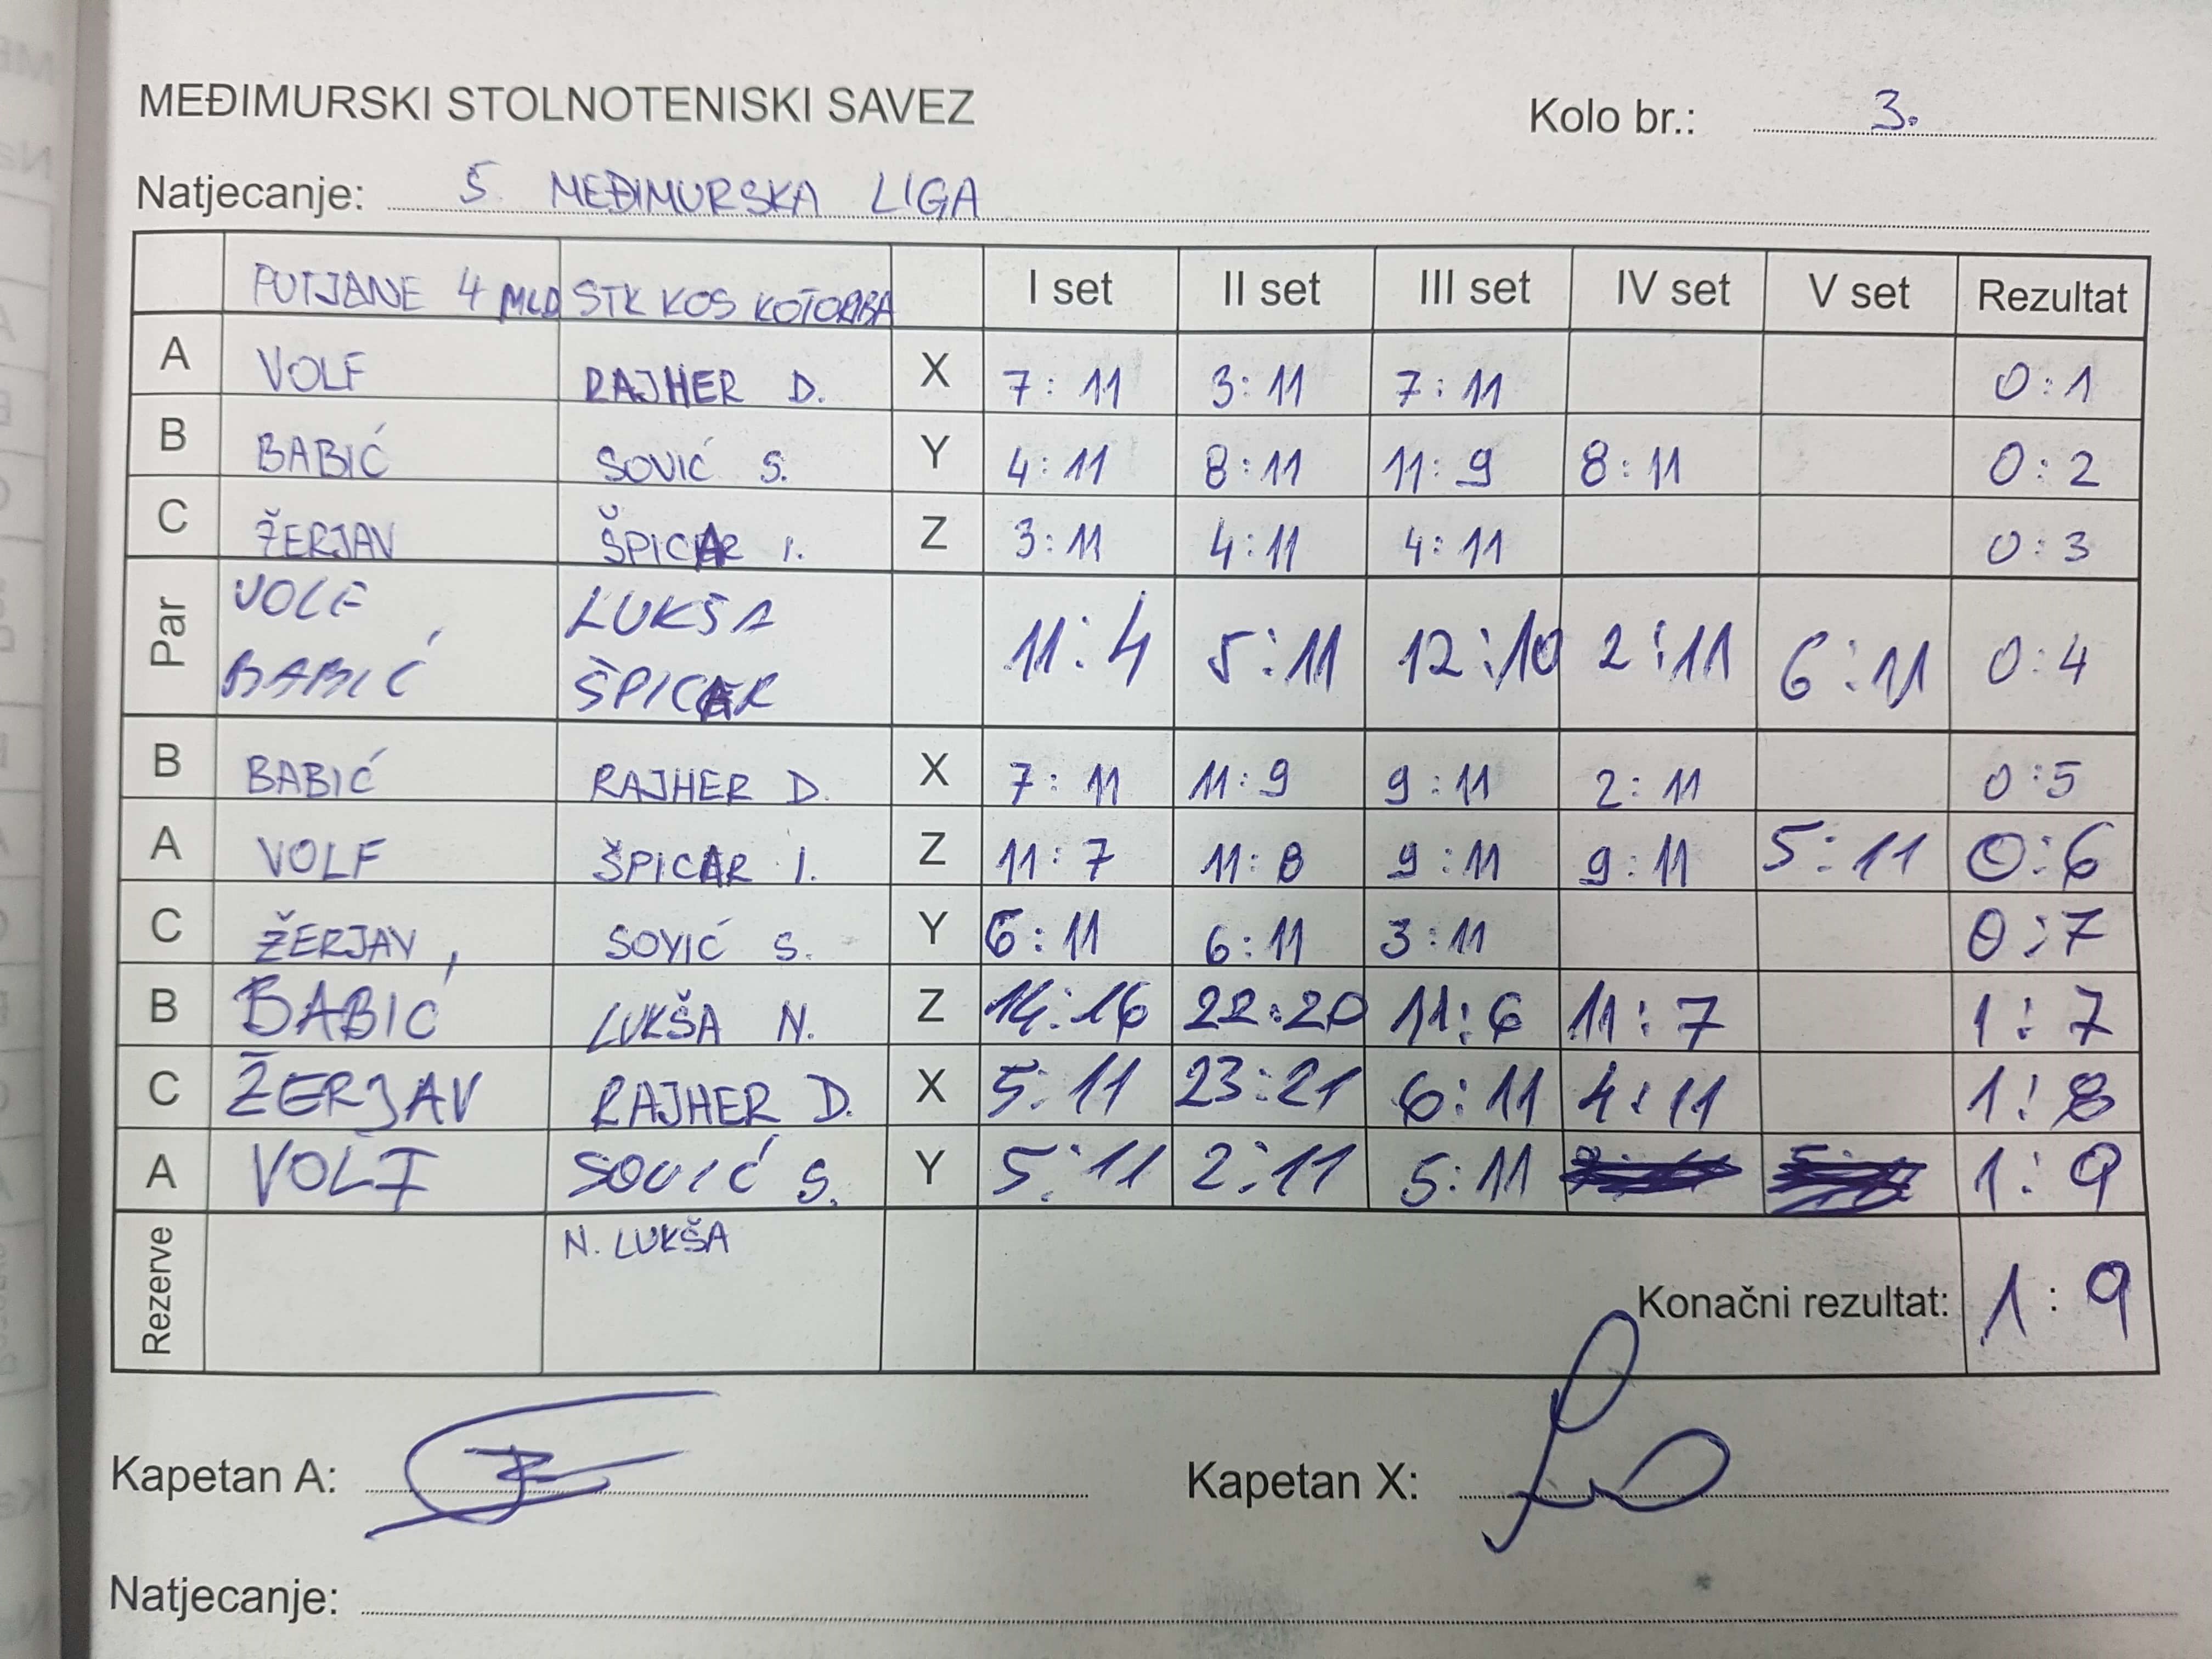 MEĐIMURSKI STOLNOTENISKI SAVEZ Kolo br.: 3.
Natjecanje: 5. MEĐIMURSKA LIGA
PUTJANE 4 MLD STK KOS KOTORBA I set II set III set IV set V set Rezultat
A VOLF RAJHER D. X 7:11 3:11 7:11 0:1
B BABIĆ SOVIĆ S. Y 4:11 8:11 11:9 8:11 0:2
C ŽERJAV ŠPICAR I. Z 3:11 4:11 4:11 0:3
Par VOLF LUKŠA 11:4 5:11 12:10 2:11 6:11 0:4
BABIĆ ŠPICAR
B BABIĆ RAJHER D. X 7:11 11:9 9:11 2:11 0:5
A VOLF ŠPICAR I. Z 11:7 11:8 9:11 9:11 5:11 0:6
C ŽERJAV, SOVIĆ S. Y 6:11 6:11 3:11 0:7
B BABIĆ LUKŠA N. Z 14:16 22:20 11:6 11:7 1:7
C ŽERJAV RAJHER D. X 5:11 23:21 6:11 4:11 1:8
A VOLF SOVIĆ S. Y 5:11 2:11 5:11 1:9
Rezerve N. LUKŠA
Konačni rezultat: 1:9
Kapetan A: Kapetan X:
Natjecanje: